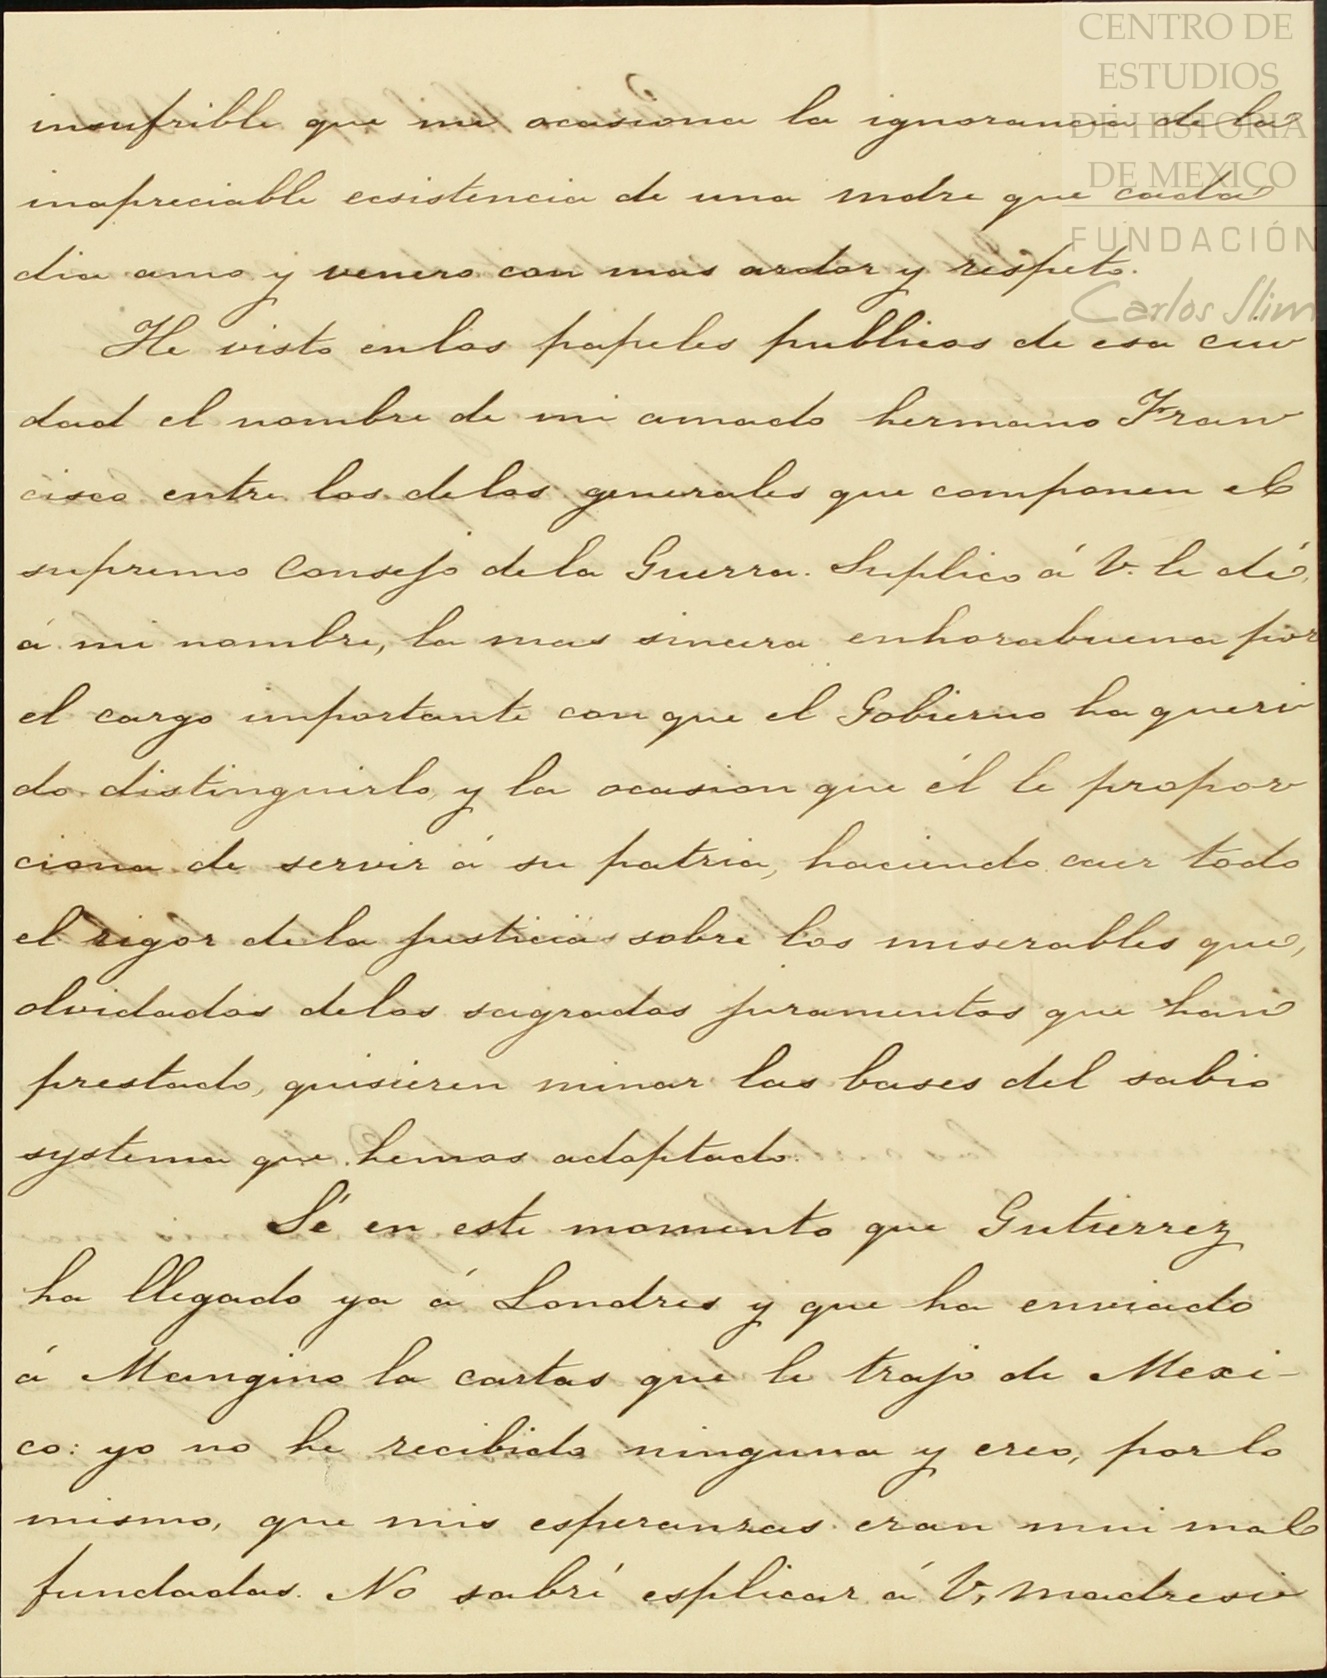 CENTRO DE
ESTUDIOS
DE HISTORIA
DE MEXICO
FUNDACIÓN
Carlos Slim
insufrible que me ocasiona la ignorancia de la
inapreciable ecsistencia de una mdre que cada
dia amo y venero con mas ardor y respeto.
He visto en los papeles publicos de esa ciu
dad el nombre de mi amado hermano Fran
cisco entre los delos generales que componen el
supremo Consejo dela Guerra. Suplico á V. le dé,
á mi nombre, la mas sincera enhorabuena por
el cargo importante con que el Gobierno ha queri
do distinguirlo, y la ocasion que él le propor
ciona de servir á su patria, haciendo caer todo
el rigor dela justicia sobre los miserables que,
olvidados delos sagrados juramentos que han
prestado, quisieren minar las bases del sabio
systema que hemos adoptado.
Sé en este momento que Gutierrez
ha llegado ya á Londres y que ha enviado
á Mangino la cartas que le trajo de Mexi-
co: yo no he recibido ninguna y creo, por lo
mismo, que mis esperanzas eran mui mal
fundadas. No sabré esplicar á V, madre si